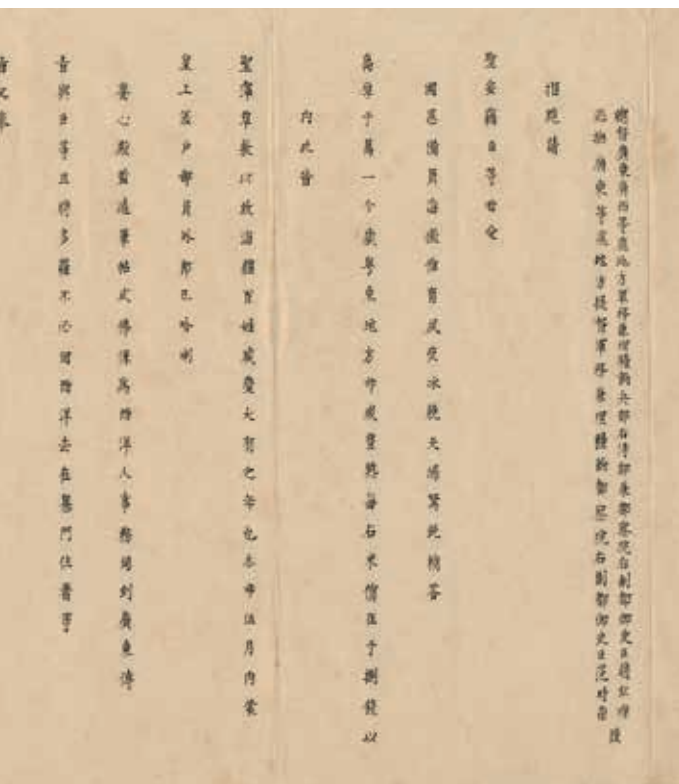 總督廣東廣西等處地方軍務兼理糧餉兵部右侍郎兼都察院右副都御史臣趙弘燦
巡撫廣東等處地方提督軍務兼理糧餉都察院右副都御史臣范時崇
摺跪請
聖安竊臣等世受
國恩備員海徼惟有夙夜冰兢矢竭駑鈍稍荅
高厚于萬一今歲粵東地方都獲豐熟每石米價止于捌錢以
內此皆
聖澤覃敷以致海疆百姓咸慶大有之年也本年伍月內蒙
皇上差戶部員外郎巴哈喇
養心殿監造筆帖式佛保為西洋人事務到廣東傳
旨與臣等且將多羅不必回西洋去在澳門住着等